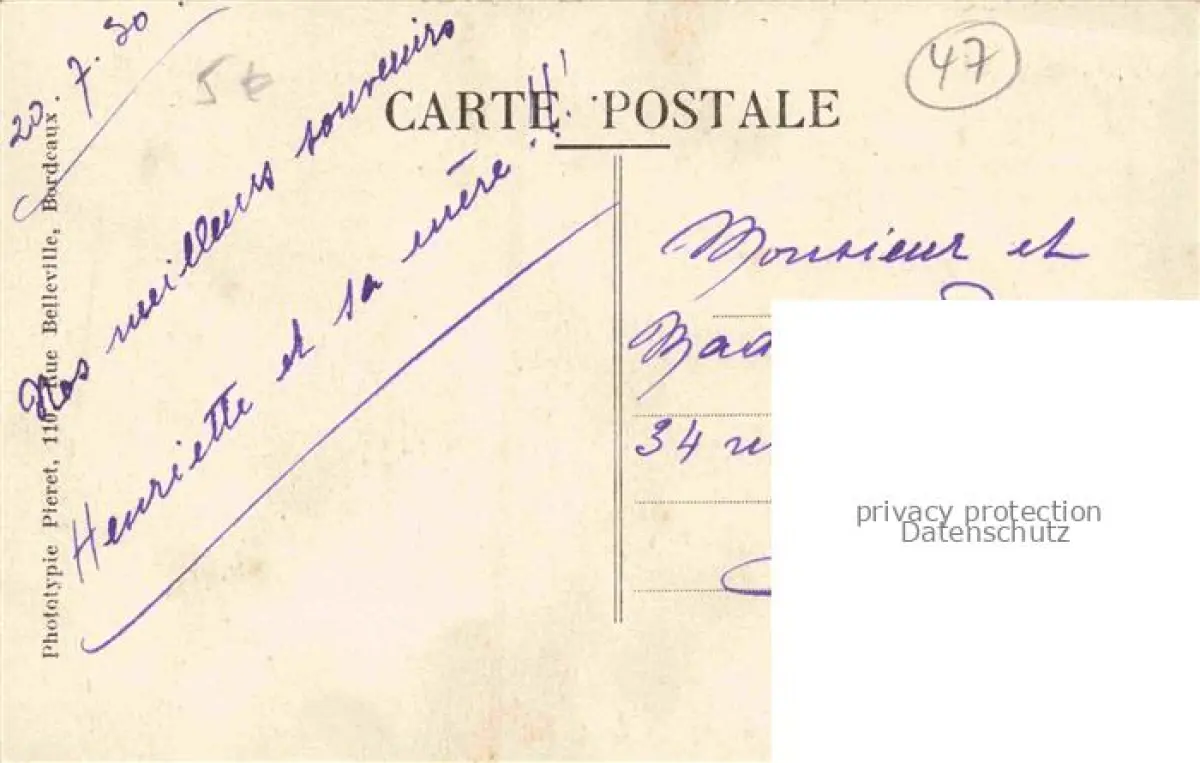 20.7.30
5€
47
CARTE POSTALE
Nos meilleurs souvenirs
Henriette et sa mère!!!
Phototypie Pieret, 110, Rue Belleville, Bordeaux.
Monsieur et
34
privacy protection
Datenschutz